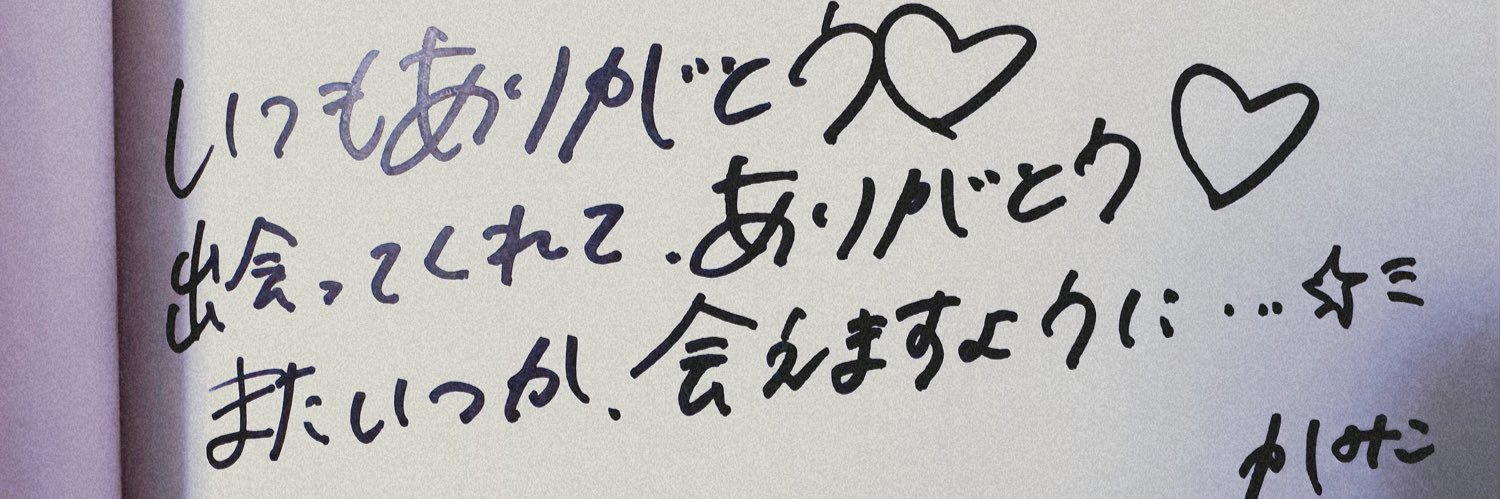 いつもありがとう♡
出会ってくれて、ありがとう♡
またいつか、会えますように…☆ミ
かしみこ